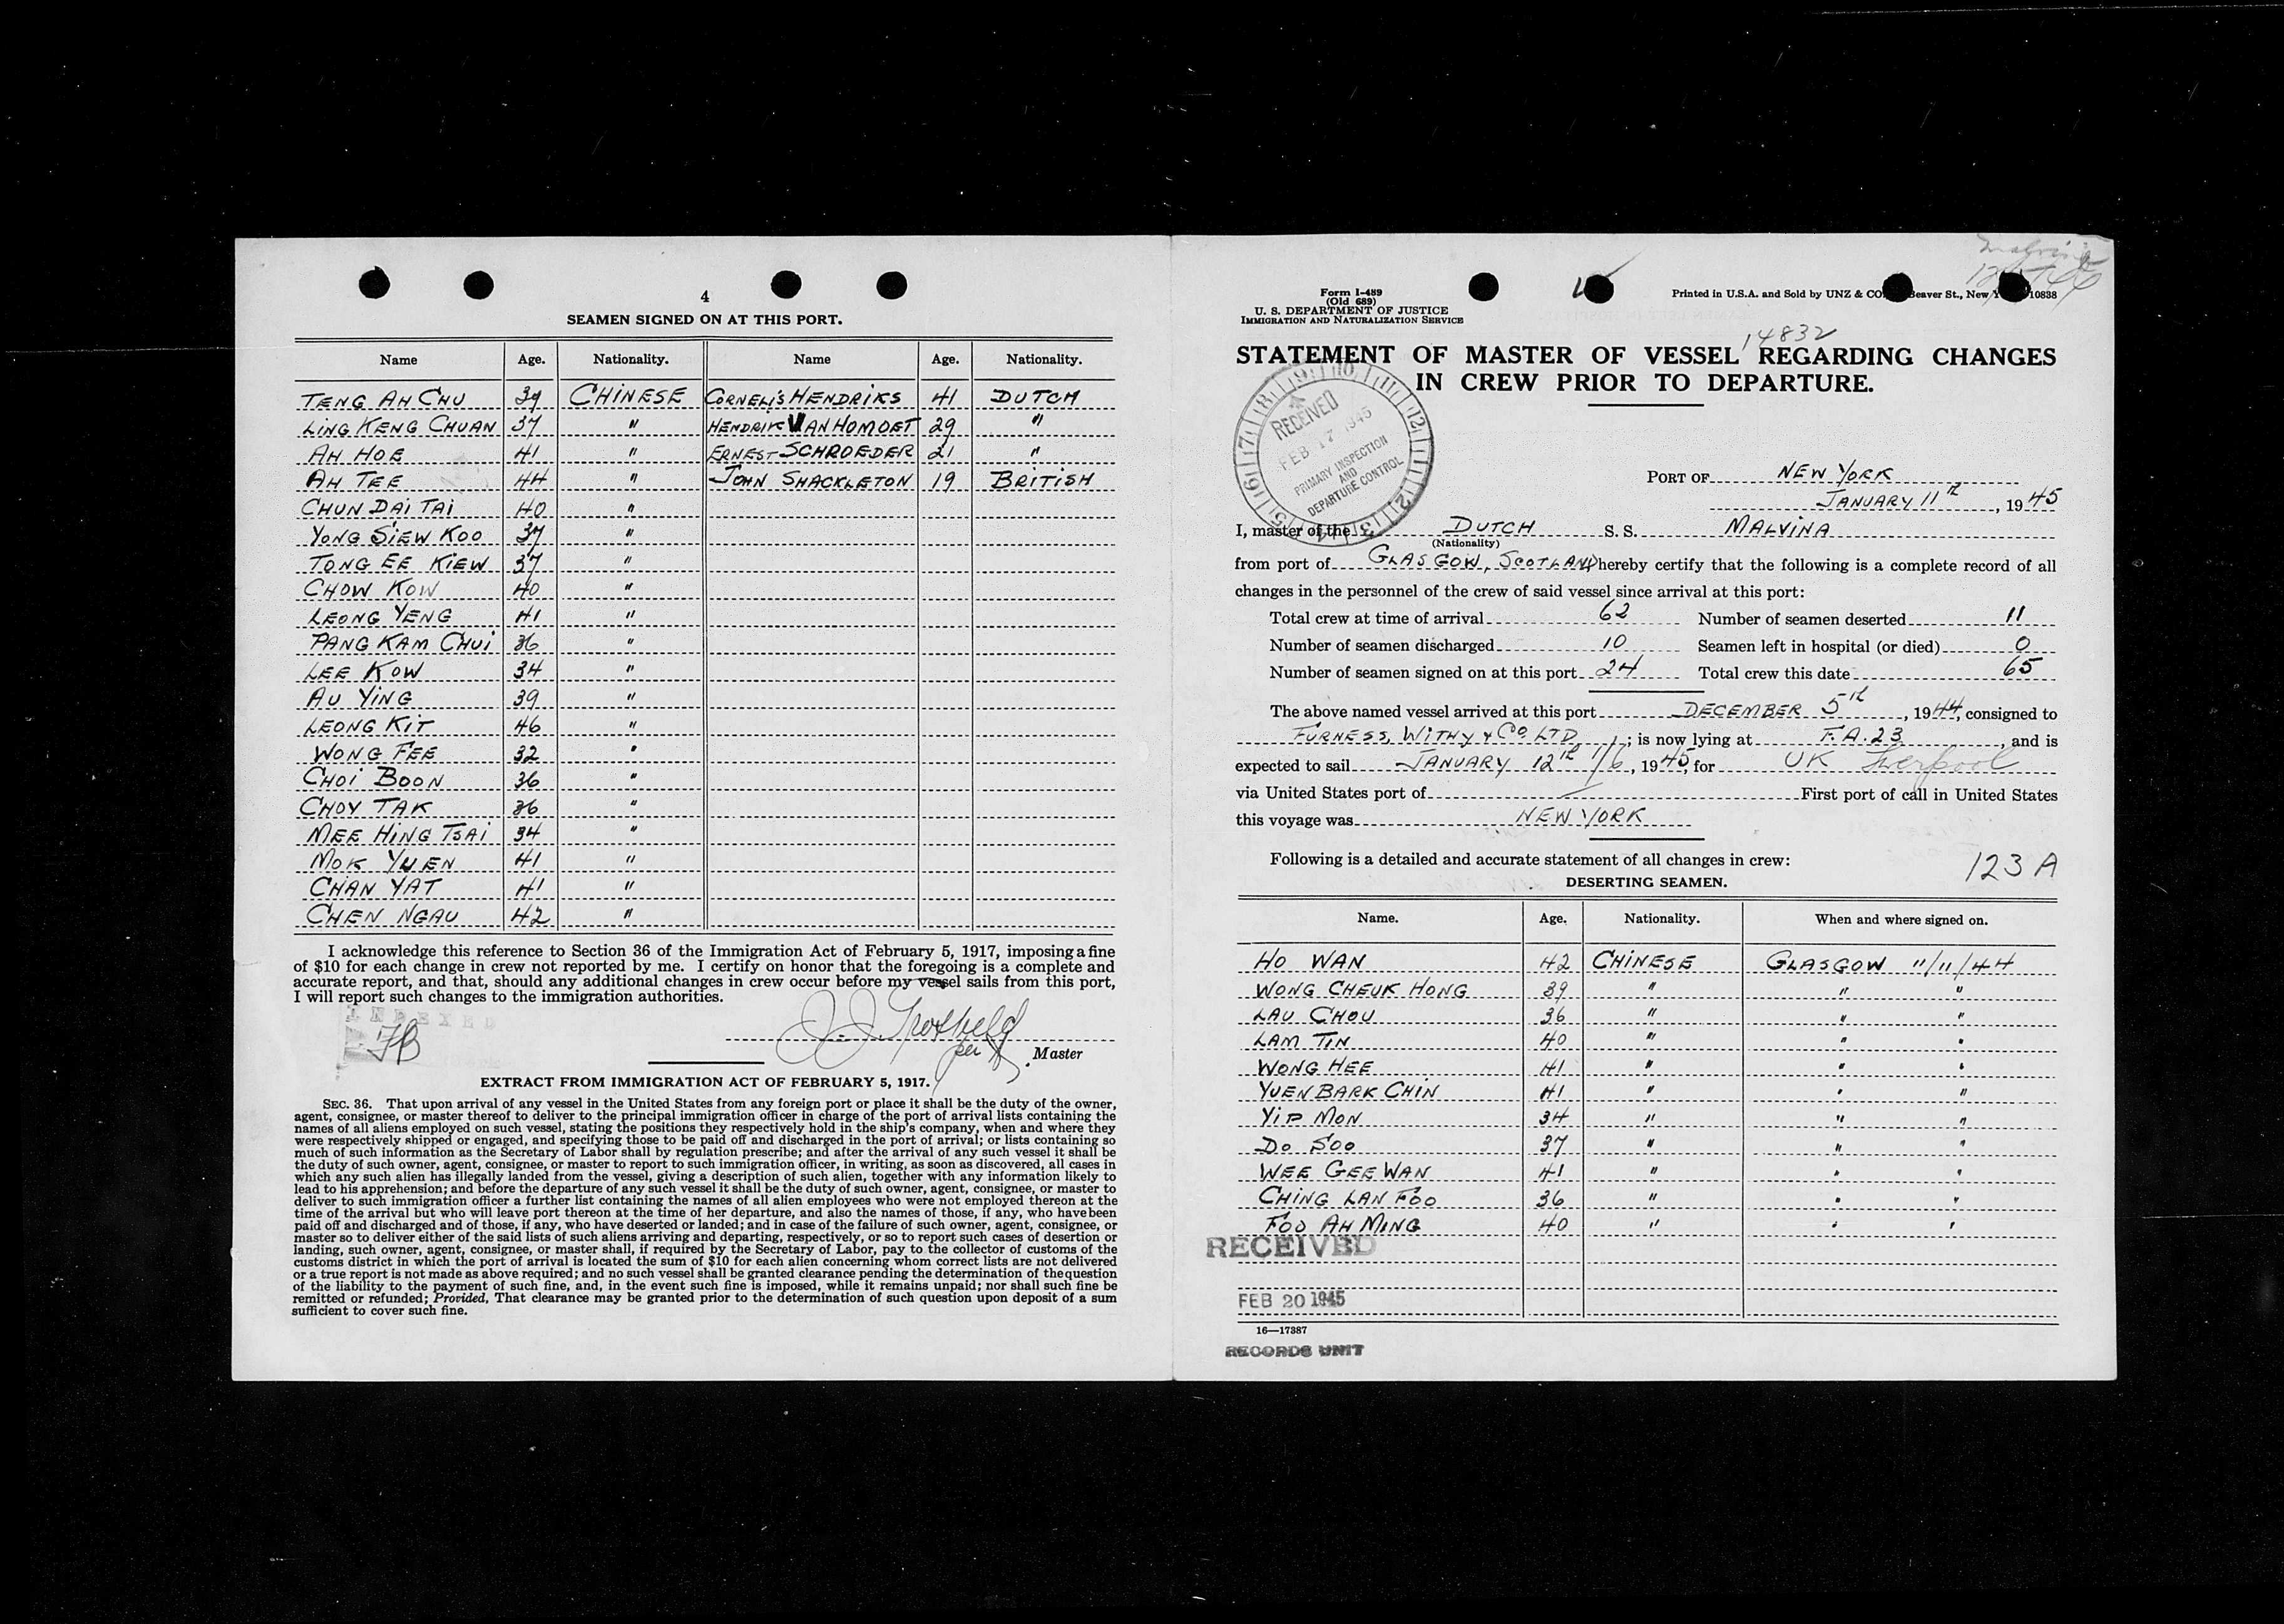 4
SEAMEN SIGNED ON AT THIS PORT.
Name Age. Nationality. Name Age. Nationality.
TENG AH CHU 39 CHINESE CORNELIS HENDRIKS 41 DUTCH
LING KENG CHUAN 37 " HENDRIK VAN HOMOET 29 "
AH HOE 41 " ERNEST SCHROEDER 21 "
AH TEE 44 " JOHN SHACKLETON 19 BRITISH
CHUN DAI TAI 40 "
YONG SIEW KOO 37 "
TONG EE KIEW 37 "
CHOW KOW 40 "
LEONG YENG 41 "
PANG KAM CHUI 36 "
LEE KOW 34 "
AU YING 39 "
LEONG KIT 46 "
WONG FEE 32 "
CHOI BOON 36 "
CHOY TAK 36 "
MEE HING TSAI 34 "
MOK YUEN 41 "
CHAN YAT 41 "
CHEN NGAU 42 "
I acknowledge this reference to Section 36 of the Immigration Act of February 5, 1917, imposing a fine
of $10 for each change in crew not reported by me. I certify on honor that the foregoing is a complete and
accurate report, and that, should any additional changes in crew occur before my vessel sails from this port,
I will report such changes to the immigration authorities.
INDEXED
FB
per
Master
EXTRACT FROM IMMIGRATION ACT OF FEBRUARY 5, 1917.
SEC. 36. That upon arrival of any vessel in the United States from any foreign port or place it shall be the duty of the owner,
agent, consignee, or master thereof to deliver to the principal immigration officer in charge of the port of arrival lists containing the
names of all aliens employed on such vessel, stating the positions they respectively hold in the ship's company, when and where they
were respectively shipped or engaged, and specifying those to be paid off and discharged in the port of arrival; or lists containing so
much of such information as the Secretary of Labor shall by regulation prescribe; and after the arrival of any such vessel it shall be
the duty of such owner, agent, consignee, or master to report to such immigration officer, in writing, as soon as discovered, all cases in
which any such alien has illegally landed from the vessel, giving a description of such alien, together with any information likely to
lead to his apprehension; and before the departure of any such vessel it shall be the duty of such owner, agent, consignee, or master to
deliver to such immigration officer a further list containing the names of all alien employees who were not employed thereon at the
time of the arrival but who will leave port thereon at the time of her departure, and also the names of those, if any, who have been
paid off and discharged and of those, if any, who have deserted or landed; and in case of the failure of such owner, agent, consignee, or
master so to deliver either of the said lists of such aliens arriving and departing, respectively, or so to report such cases of desertion or
landing, such owner, agent, consignee, or master shall, if required by the Secretary of Labor, pay to the collector of customs of the
customs district in which the port of arrival is located the sum of $10 for each alien concerning whom correct lists are not delivered
or a true report is not made as above required; and no such vessel shall be granted clearance pending the determination of the question
of the liability to the payment of such fine, and, in the event such fine is imposed, while it remains unpaid; nor shall such fine be
remitted or refunded; Provided, That clearance may be granted prior to the determination of such question upon deposit of a sum
sufficient to cover such fine.
Form I-489
(Old 689)
U. S. DEPARTMENT OF JUSTICE
IMMIGRATION AND NATURALIZATION SERVICE
Printed in U.S.A. and Sold by UNZ & CO. Beaver St., New Y 10838
14832
STATEMENT OF MASTER OF VESSEL REGARDING CHANGES
IN CREW PRIOR TO DEPARTURE.
RECEIVED
FEB 17 1945
PRIMARY INSPECTION
AND
DEPARTURE CONTROL
PORT OF NEW YORK
JANUARY 11th, 1945
I, master of the DUTCH S. S. MALVINA
(Nationality)
from port of GLASGOW, SCOTLAND hereby certify that the following is a complete record of all
changes in the personnel of the crew of said vessel since arrival at this port:
Total crew at time of arrival 62 Number of seamen deserted 11
Number of seamen discharged 10 Seamen left in hospital (or died) 0
Number of seamen signed on at this port 24 Total crew this date 65
The above named vessel arrived at this port DECEMBER 5th, 1944, consigned to
FURNESS, WITHY & CO LTD; is now lying at F.A. 23, and is
expected to sail JANUARY 12th 1/6, 1945, for UK Liverpool
via United States port of First port of call in United States
this voyage was NEW YORK
Following is a detailed and accurate statement of all changes in crew: 123 A
DESERTING SEAMEN.
Name. Age. Nationality. When and where signed on.
HO WAN 42 CHINESE GLASGOW 11/11/44
WONG CHEUK HONG 39 " " "
LAU CHOU 36 " " "
LAM TIN 40 " " "
WONG HEE 41 " " "
YUEN BARK CHIN 41 " " "
YIP MON 34 " " "
DO SOO 37 " " "
WEE GEE WAN 41 " " "
CHING LAN FOO 36 " " "
FOO AH MING 40 " " "
RECEIVED
FEB 20 1945
16—17387
RECORDS UNIT